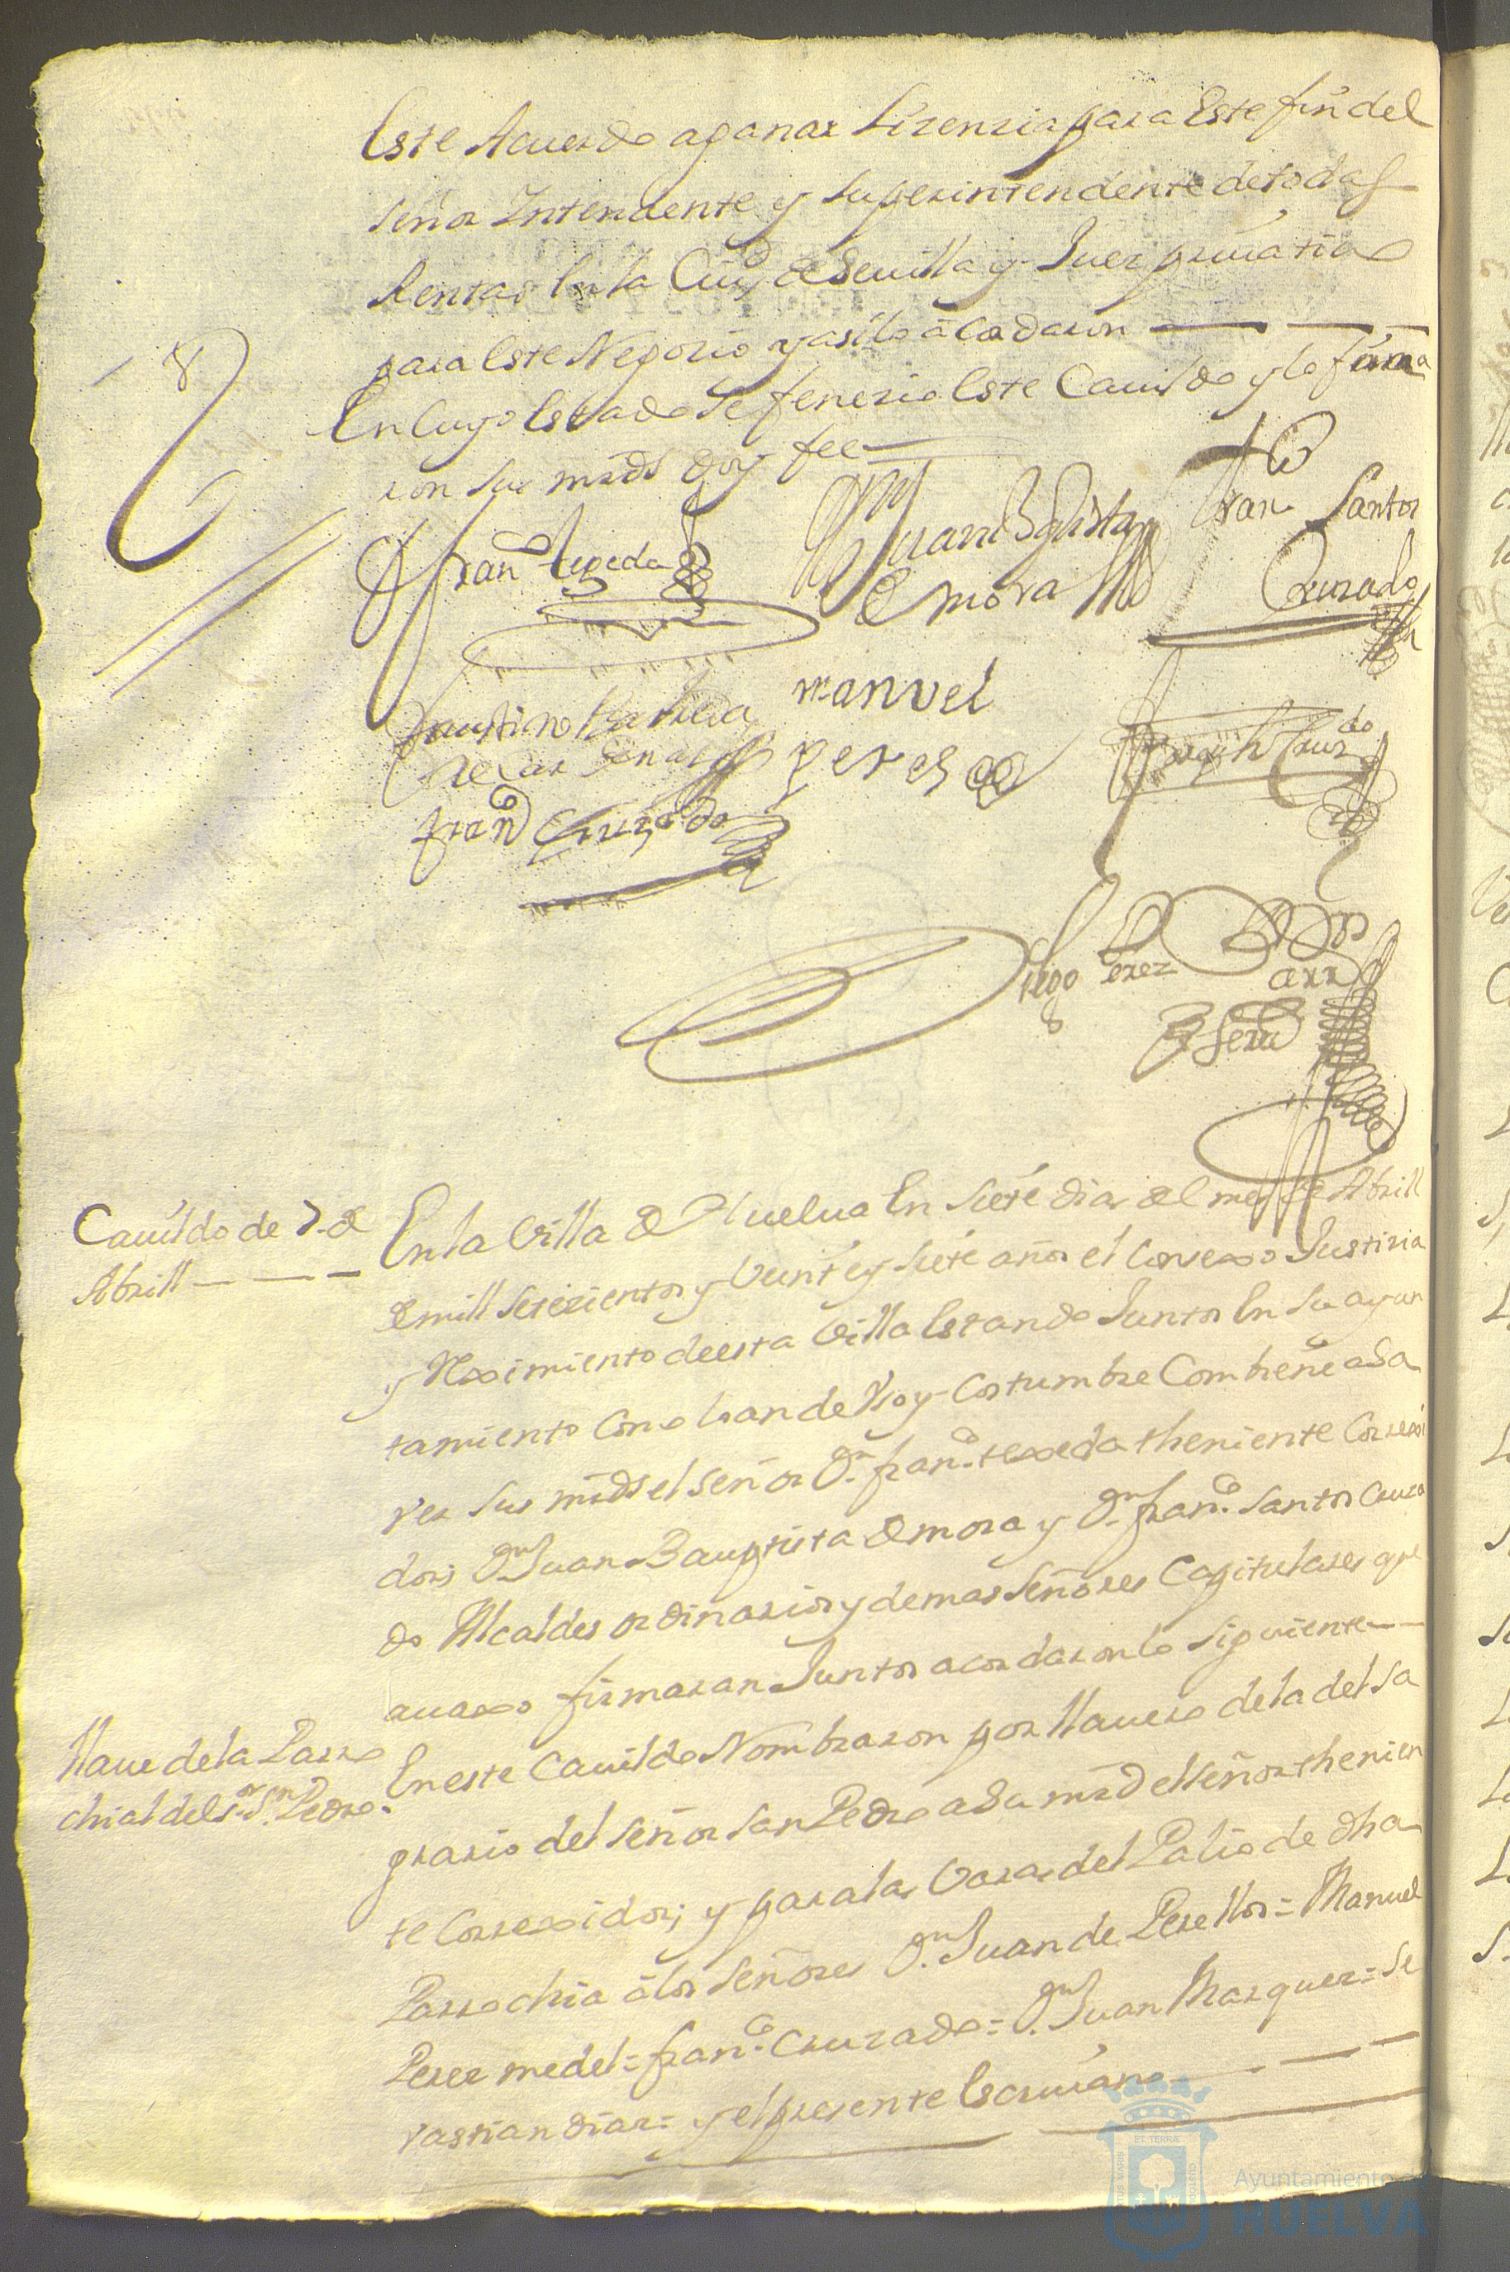 Este Acuerdo a ganar Lizenzia para Este fin del
señor Intendente y superintendente de todas
Rentas En la Ciud de Seuilla y Juez priuatiuo
para Este Negozio y asi lo acordaron
En Cuyo Estado se fenezio Este Cauildo y lo firma
ron sus mrds doy fee
Franco texeda
Dn Juan Baptista de mora
Franco Santos Cruzado
Faustino
de Cardenas
manuel perez
Joseph Cruzdo
Franco Cruzado
Diego Perez
esno
Cauildo de 7 de
Abrill
En la Villa de Huelua En siete dias del mes de Abrill
de mill setezientos y Veinte y siete años el Consexo Justizia
y Reximiento de esta Villa Estando Juntos En su ayun
tamiento Como lo an de Vso y Costumbre Combiene a sa
ver sus mrds el señor Dn franco texeda theniente Correxi
dor; Dn Juan Bauptista de mora y Dn franco Santos Cruza
do Alcaldes ordinarios y demas señores Capitulares que
auaxo firmaran Juntos acordaron lo siguiente
llaue de la Parro
chial del sor Sn Pedro.
En este Cauildo Nombraron por llauero de la del Sa
grario del señor San Pedro a Su mrd el señor thenien
te Correxidor; y para las Varas del Palio de dha
Parrochia a los señores Dn Juan de Perellos = Manuel
Perez medel = franco Cruzado = Dn Juan Marquez = Se
vastian diaz = y el presente Escriuano
Ayuntamiento de
HUELVA